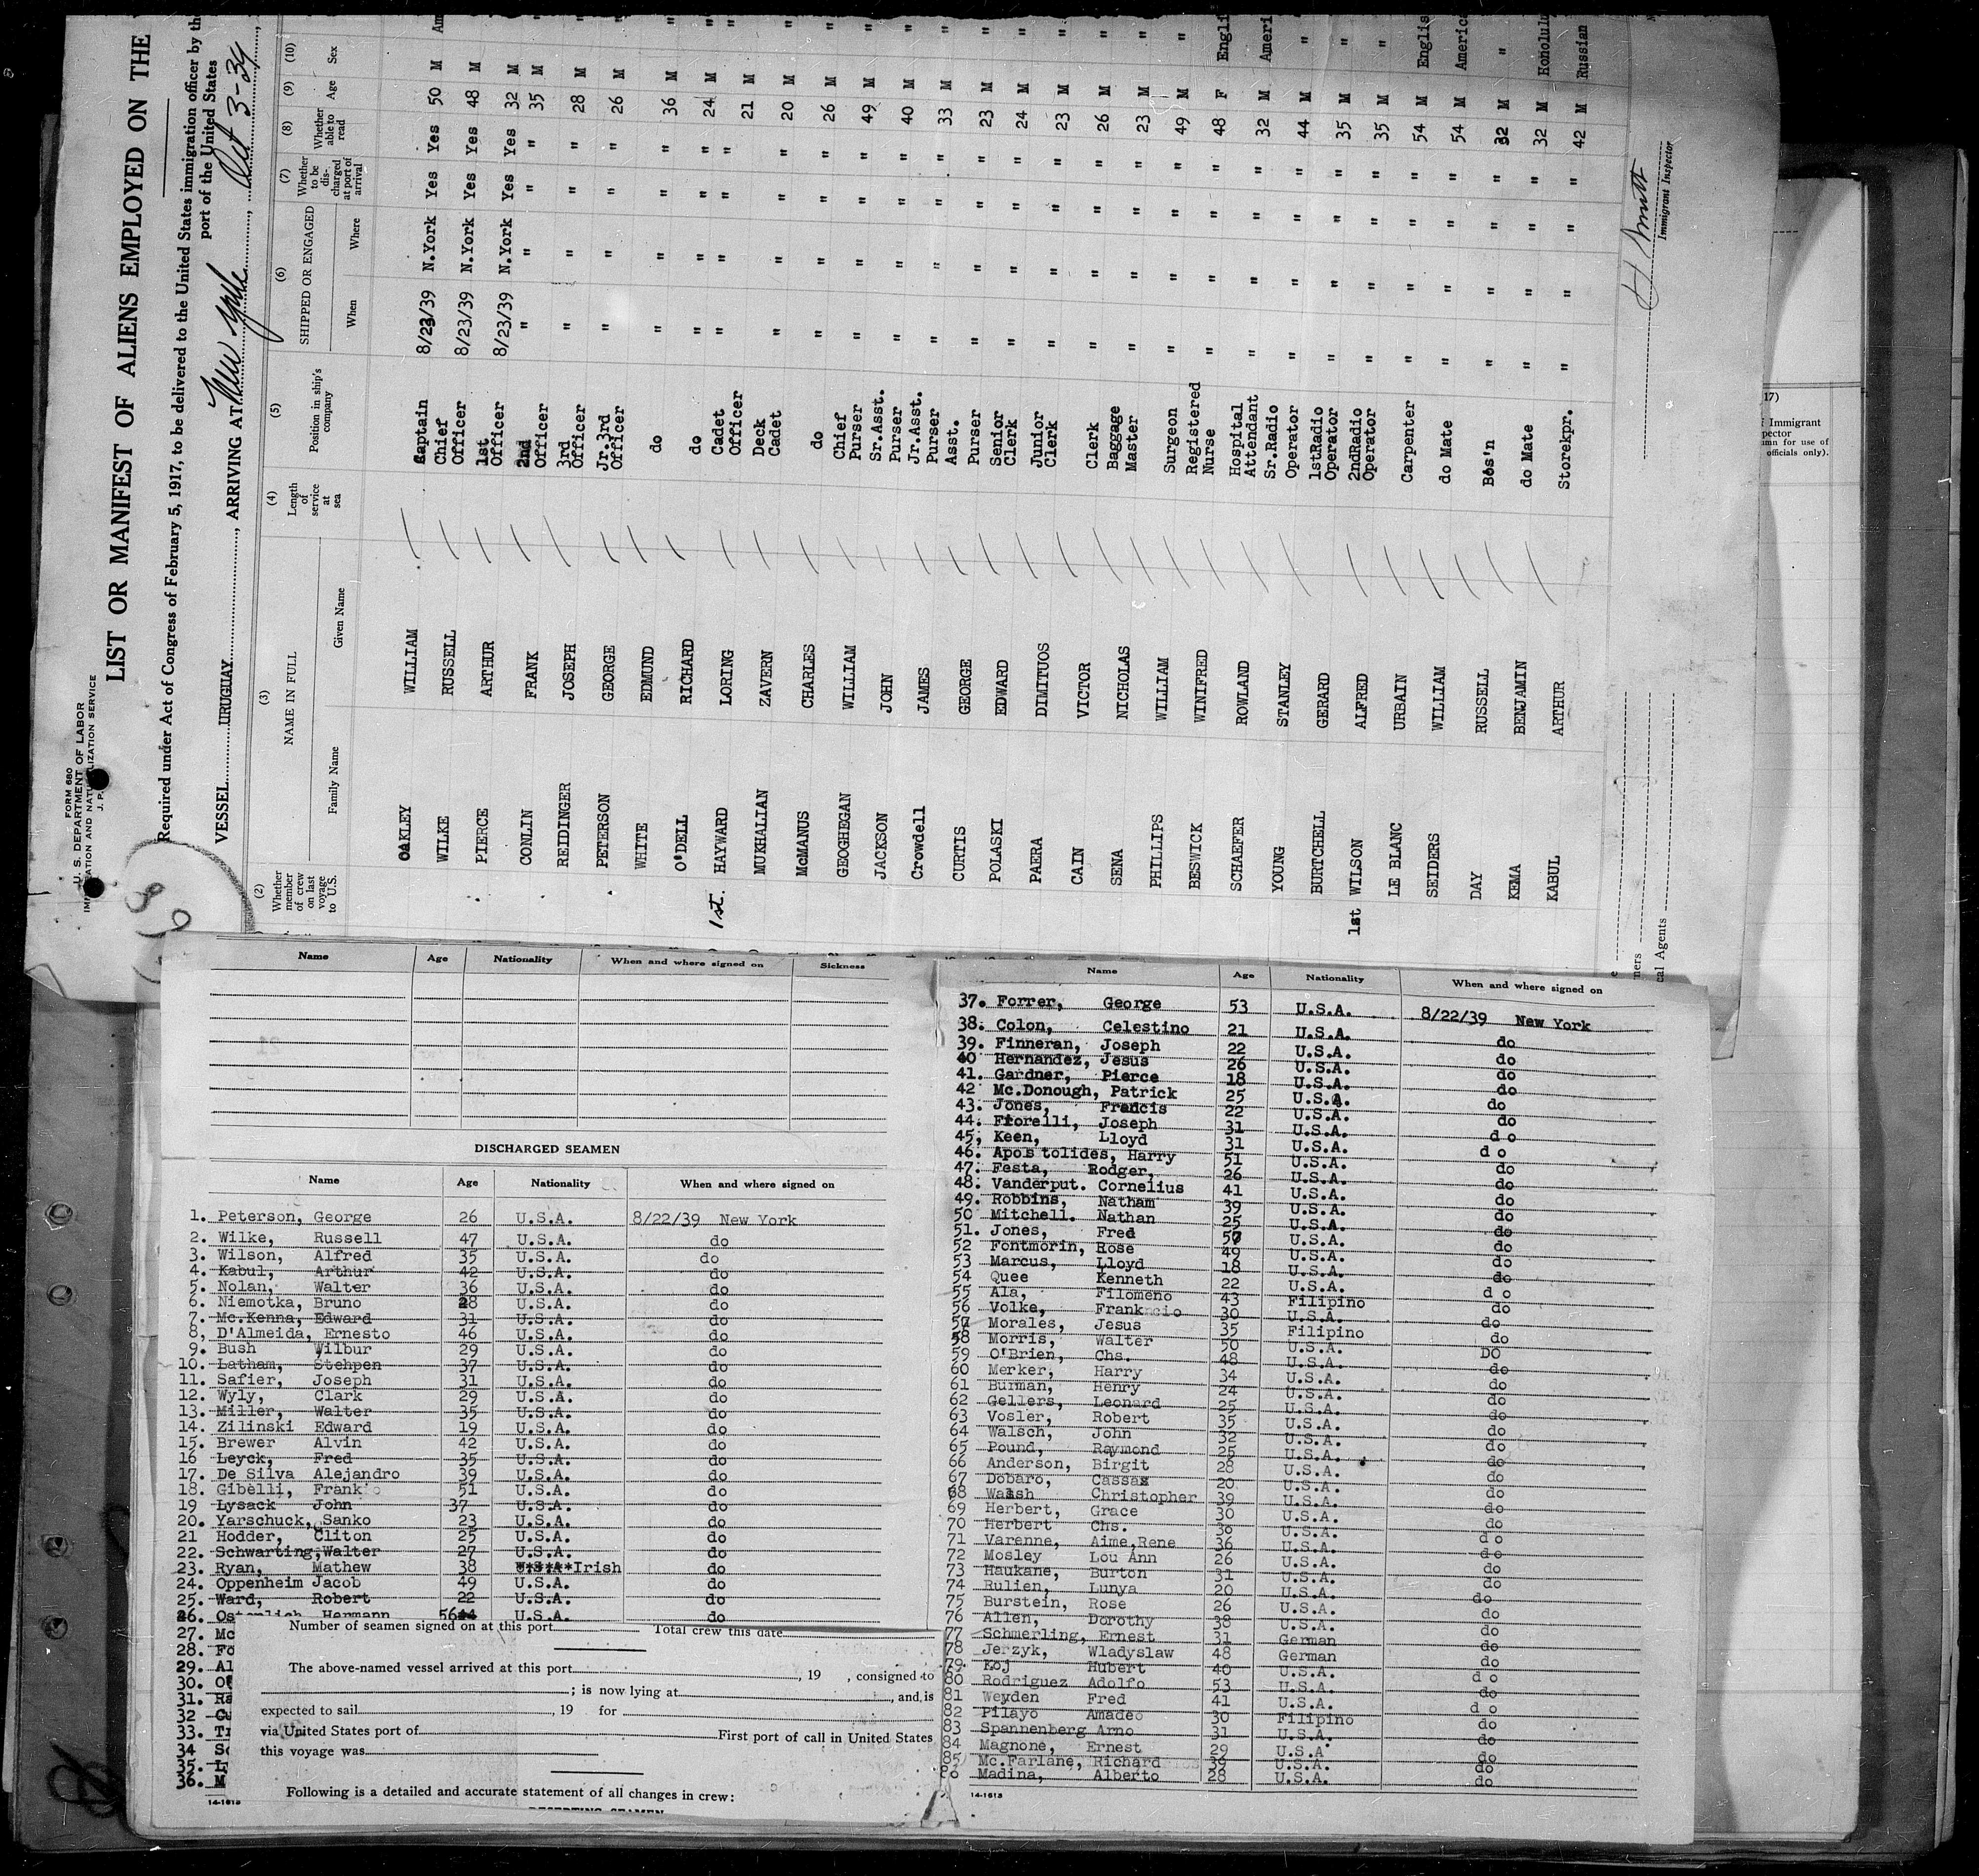 FORM 680
U. S. DEPARTMENT OF LABOR
IMMIGRATION AND NATURALIZATION SERVICE
LIST OR MANIFEST OF ALIENS EMPLOYED ON THE
Required under Act of Congress of February 5, 1917, to be delivered to the United States immigration officer by the
port of the United States
VESSEL URUGUAY, ARRIVING AT New York, Oct 3-39,
(2) (3) (4) (5) (6) (7) (8) (9) (10)
Whether member of crew on last voyage to U.S. NAME IN FULL Family Name Given Name Length of service at sea Position in ship's company SHIPPED OR ENGAGED When Where Whether to be discharged at port of arrival Whether able to read Age Sex
OAKLEY WILLIAM Captain 8/23/39 N.York Yes Yes 50 M
WILKE RUSSELL Chief Officer 8/23/39 N.York Yes Yes 48 M "
PIERCE ARTHUR 1st Officer 8/23/39 N.York Yes Yes 32 M "
CONLIN FRANK 2nd Officer " " " " 35 M "
REIDINGER JOSEPH 3rd Officer " " " " 28 M "
PETERSON GEORGE Jr.3rd Officer " " " " 26 M "
WHITE EDMUND do " " " " 36 M "
O'DELL RICHARD do " " " " 24 M "
1st. HAYWARD LORING Cadet Officer " " " " 21 M "
MUKHALIAN ZAVERN Deck Cadet " " " " 20 M "
McMANUS CHARLES do " " " " 26 M "
GEOGHEGAN WILLIAM Chief Purser " " " " 49 M "
JACKSON JOHN Sr.Asst. Purser " " " " 40 M "
Crowdell JAMES Jr.Asst. Purser " " " " 33 M "
CURTIS GEORGE Asst. Purser " " " " 23 M "
POLASKI EDWARD Senior Clerk " " " " 24 M "
PAERA DIMITUOS Junior Clerk " " " " 23 M "
CAIN VICTOR Clerk " " " " 26 M "
SENA NICHOLAS Baggage Master " " " " 23 M "
PHILLIPS WILLIAM Surgeon " " " " 49 M "
BESWICK WINIFRED Registered Nurse " " " " 48 F Engli
SCHAEFER ROWLAND Hospital Attendant " " " " 32 M Ameri
YOUNG STANLEY Sr.Radio Operator " " " " 44 M "
BURTCHELL GERARD 1stRadio Operator " " " " 35 M "
1st WILSON ALFRED 2ndRadio Operator " " " " 35 M "
LE BLANC URBAIN Carpenter " " " " 54 M Englis
SEIDERS WILLIAM do Mate " " " " 54 M America
DAY RUSSELL Bos'n " " " " 32 M "
KEMA BENJAMIN do Mate " " " " 32 M Honolulu
KABUL ARTHUR Storekpr. " " " " 42 M Russian
Immigrant Inspector
cal Agents
17)
Immigrant
pector
umn for use of
officials only).
Name Age Nationality When and where signed on Sickness
DISCHARGED SEAMEN
Name Age Nationality When and where signed on
1. Peterson, George 26 U.S.A. 8/22/39 New York
2. Wilke, Russell 47 U.S.A. do
3. Wilson, Alfred 35 U.S.A. do
4. Kabul, Arthur 42 U.S.A. do
5. Nolan, Walter 36 U.S.A. do
6. Niemotka, Bruno 28 U.S.A. do
7. Mc.Kenna, Edward 31 U.S.A. do
8, D'Almeida, Ernesto 46 U.S.A. do
9. Bush Wilbur 29 U.S.A. do
10. Latham, Stehpen 37 U.S.A. do
11. Safier, Joseph 31 U.S.A. do
12. Wyly, Clark 29 U.S.A. do
13. Miller, Walter 35 U.S.A. do
14. Zilinski Edward 19 U.S.A. do
15. Brewer Alvin 42 U.S.A. do
16 Leyck, Fred 35 U.S.A. do
17. De Silva Alejandro 39 U.S.A. do
18. Gibelli, Frank 51 U.S.A. do
19 Lysack John 37 U.S.A. do
20. Yarschuck, Sanko 23 U.S.A. do
21 Hodder, Cliton 25 U.S.A. do
22. Schwarting,Walter 27 U.S.A. do
23. Ryan, Mathew 38 Irish do
24. Oppenheim Jacob 49 U.S.A. do
25. Ward, Robert 22 U.S.A. do
26. Hermann 56 U.S.A. do
27. Mc
28. Fo
29. Al
30.
31. Ra
32
33. Tr
34
35.
36. M
14-1613
Number of seamen signed on at this port Total crew this date
The above-named vessel arrived at this port, 19 , consigned to
; is now lying at, and is
expected to sail, 19 for
via United States port of First port of call in United States
this voyage was
Following is a detailed and accurate statement of all changes in crew:
DESERTING SEAMEN
Name Age Nationality When and where signed on
37. Forrer, George 53 U.S.A. 8/22/39 New York
38. Colon, Celestino 21 U.S.A. do
39. Finneran, Joseph 22 U.S.A. do
40 Hernandez, Jesus 26 U.S.A. do
41. Gardner, Pierce 18 U.S.A. do
42 Mc.Donough, Patrick 25 U.S.A. do
43. Jones, Francis 22 U.S.A. do
44. Fiorelli, Joseph 31 U.S.A. do
45, Keen, Lloyd 31 U.S.A. do
46. Apostolides, Harry 51 U.S.A. do
47. Festa, Rodger, 26 U.S.A. do
48. Vanderput. Cornelius 41 U.S.A. do
49. Robbins, Natham 39 U.S.A. do
50 Mitchell. Nathan 25 U.S.A. do
51. Jones, Fred 57 U.S.A. do
52 Fontmorin, Rose 49 U.S.A. do
53 Marcus, Lloyd 18 U.S.A. do
54 Quee Kenneth 22 U.S.A. do
55 Ala, Filomeno 43 Filipino do
56 Volke, Frank 30 U.S.A. do
57 Morales, Jesus 35 Filipino do
58 Morris, Walter 50 U.S.A. do
59 O'Brien, Chs. 48 U.S.A. DO
60 Merker, Harry 34 U.S.A. do
61 Burman, Henry 24 U.S.A. do
62 Gellers, Leonard 25 U.S.A. do
63 Vosler, Robert 35 U.S.A. do
64 Walsch, John 32 U.S.A. do
65 Pound, Raymond 25 U.S.A. do
66 Anderson, Birgit 28 U.S.A. do
67 Dobaro, Cassas 20 U.S.A. do
68 Walsh Christopher 39 U.S.A. do
69 Herbert, Grace 30 U.S.A. do
70 Herbert Chs. 36 U.S.A. do
71 Varenne, Aime,Rene 36 U.S.A. do
72 Mosley Lou Ann 26 U.S.A. do
73 Haukane, Burton 31 U.S.A. do
74 Rulien, Lunya 20 U.S.A. do
75 Burstein, Rose 26 U.S.A. do
76 Allen, Dorothy 38 U.S.A. do
77 Schmerling, Ernest 31 German do
78 Jerzyk, Wladyslaw 48 German do
79. Koj Hubert 40 U.S.A. do
80 Rodriguez Adolfo 53 U.S.A. do
81 Weyden Fred 41 U.S.A. do
82 Pilayo Amadeo 30 Filipino do
83 Spannenberg Arno 31 U.S.A. do
84 Magnone, Ernest 29 U.S.A do
85 Mc.Farlane, Richard 39 U.S.A. do
86 Madina, Alberto 28 U.S.A. do
14-1613